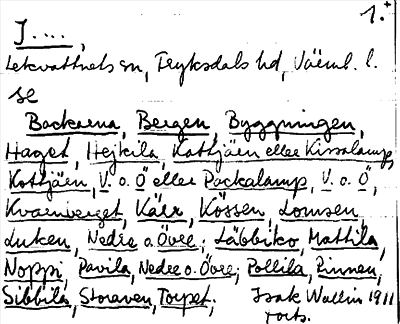 1.+
I....,
Lekvattnets sn, Fryksdals hd, Värml. l.
se
Backarna, Bergen, Byggningen,
Haget, Hejkila, Kattjärn eller Kissalamp,
Kottjärn, V. o. Ö eller Packalamp, V. o. Ö,
Kvarnberget, Kärr, Kössen, Lomsen,
Luken, Nedre o. Övre; Läbbiko, Mattila,
Noppi, Pavila, Nedre o. Övre; Pollila, Rinnen,
Sibbila, Storaven, Torpet; Isak Wallin 1911
forts.